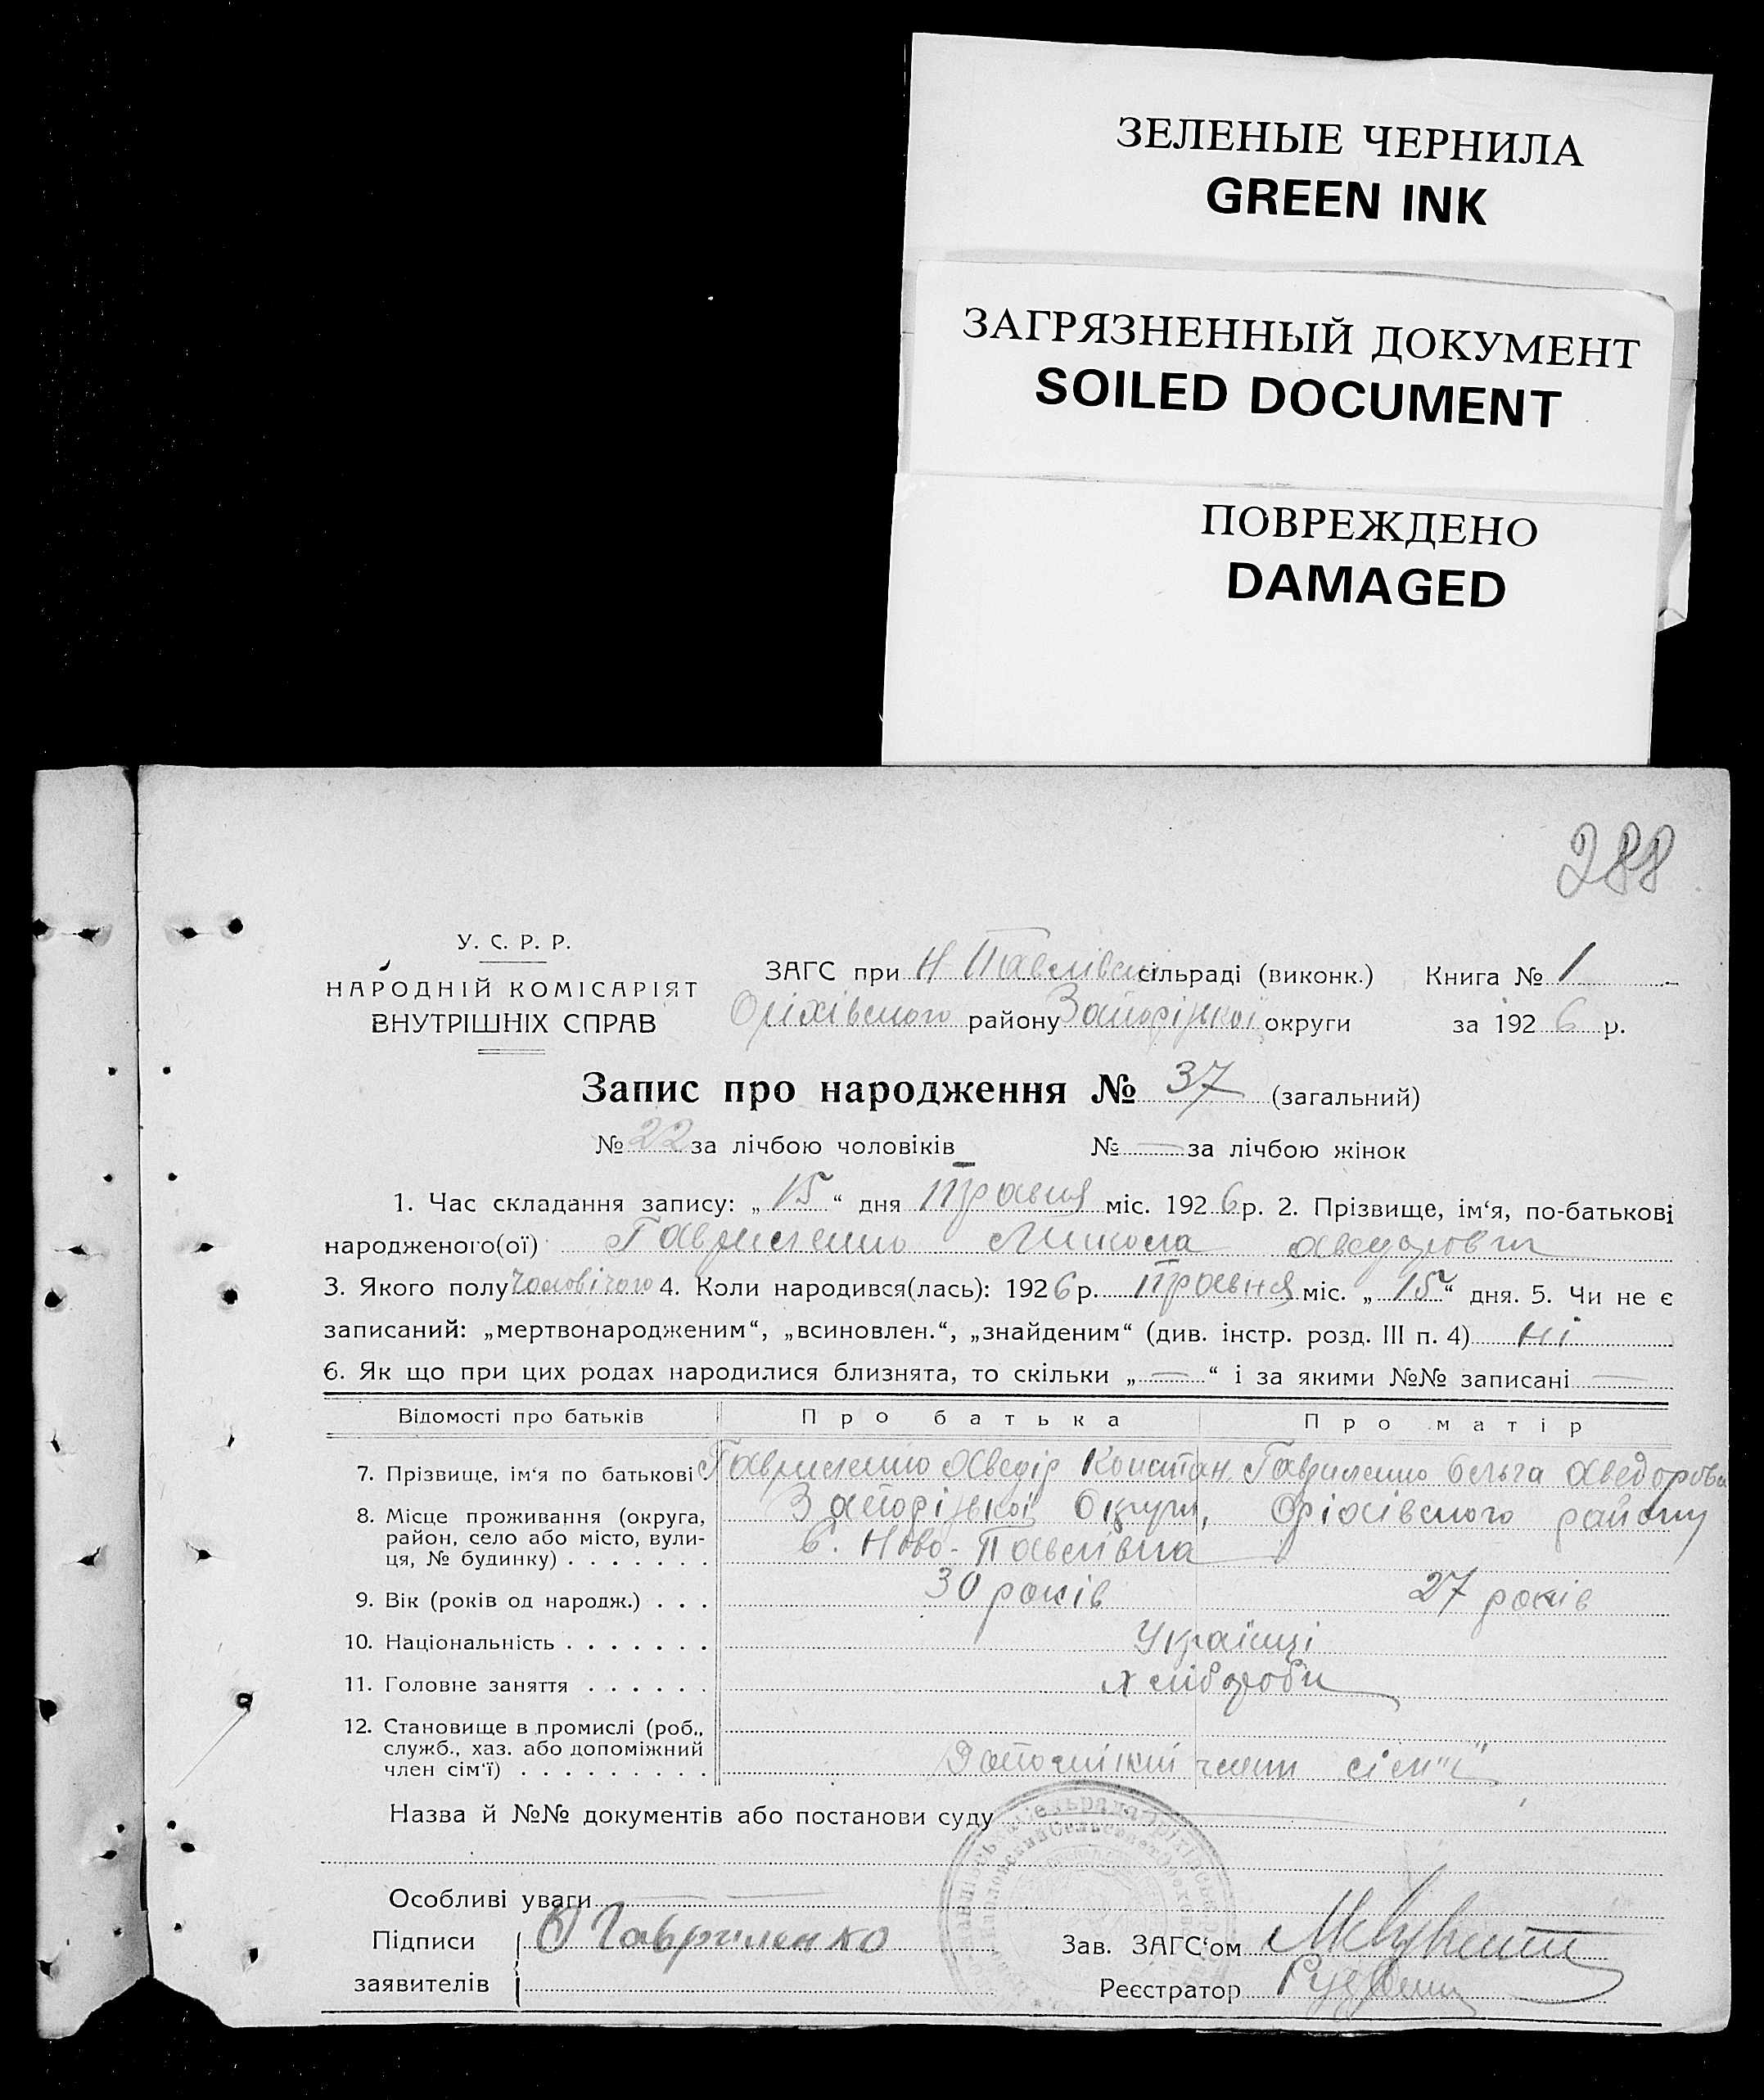 ЗЕЛЕНЫЕ ЧЕРНИЛА
GREEN INK
ЗАГРЯЗНЕННЫЙ ДОКУМЕНТ
SOILED DOCUMENT
ПОВРЕЖДЕНО
DAMAGED
288
У. С. Р. Р.
НАРОДНІЙ КОМІСАРІЯТ
ВНУТРІШНІХ СПРАВ
ЗАГС при Н Павлівській сільраді (виконк.) Книга № 1
Оріхівского району Запоріжкої округи за 1926 р.
Запис про народження № 37 (загальний)
№ 22 за лічбою чоловіків № — за лічбою жінок
1. Час складання запису: „ 15 “ дня Травня міс. 1926 р. 2. Прізвище, ім‘я, по-батькові
народженого(ої) Гавриленко Микола Аведорович
3. Якого полу Чоловічого 4. Коли народився(лась): 1926 р. Травня міс. „ 15 “ дня. 5. Чи не є
записаний: „мертвонародженим“, „всиновлен.“, „знайденим“ (див. інстр. розд. III п. 4) Ні
6. Як що при цих родах народилися близнята, то скільки „ — “ і за якими №№ записані —
Відомості про батьків Про батька Про матір
7. Прізвище, ім‘я по батькові Гавриленко Аведір Констан Гавриленко Ольга Аведоров
8. Місце проживання (округа, район, село або місто, вули- ця, № будинку) . . . . . . . Запоріжкої Округи, Оріхівского району
С. Ново-Павлівка
9. Вік (років од народж.) . . . 30 років 27 років
10. Національність . . . . . . . Українці
11. Головне заняття . . . . . . Хлібороби
12. Становище в промислі (роб., служб., хаз. або допоміжний член сім‘ї) . . . . . . . . . член сім"ї
Назва й №№ документів або постанови суду
Особливі уваги
Підписи
заявителів
О Гавриленко
Зав. ЗАГС‘ом
Реєстратор